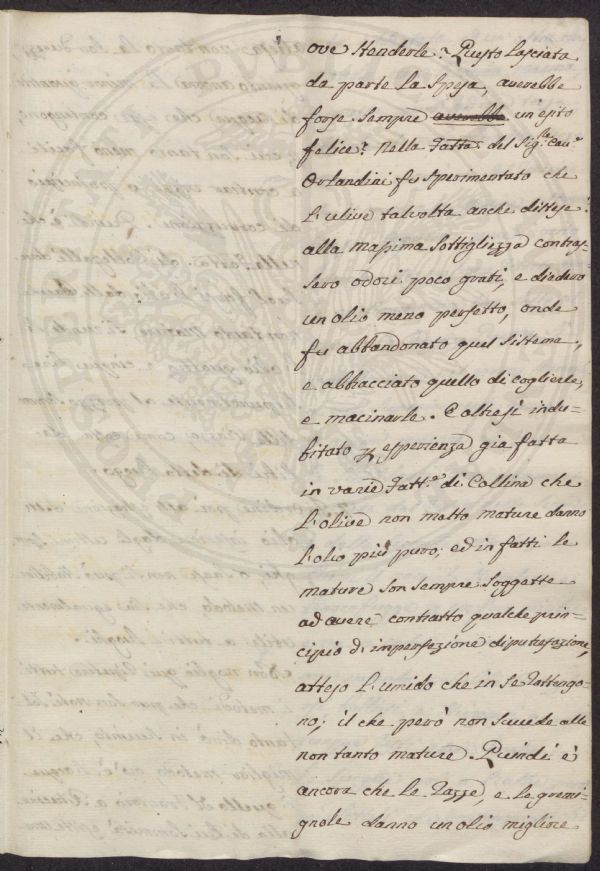 ove stenderle? Questo lasciata
da parte la spesa, averebbe
forse sempre averebbe un esito
felice? Nella Fatta. del Sig.le Cav.e
Orlandini fu sperimentato che
l'ulive talvolta anche distese
alla massima sottigliezza contras=
sero odori poco grati, e diedero
un olio meno perfetto, onde
fu abbandonato quel sistema,
e abbracciato quello di coglierle,
e macinarle. È altresì indu=
bitato p esperienza già fatta
in varie Fatt.e di Collina che
l'olive non molto mature danno
l'olio più puro; ed in fatti le
mature son sempre soggette
ad avere contratto qualche prin=
cipio di imperfezione di putrefazione,
atteso l'umido che in se rattengo=
no; il che però non succede alle
non tanto mature. Quindi è
ancora che le Razze, e le gremi=
gnole danno un olio migliore